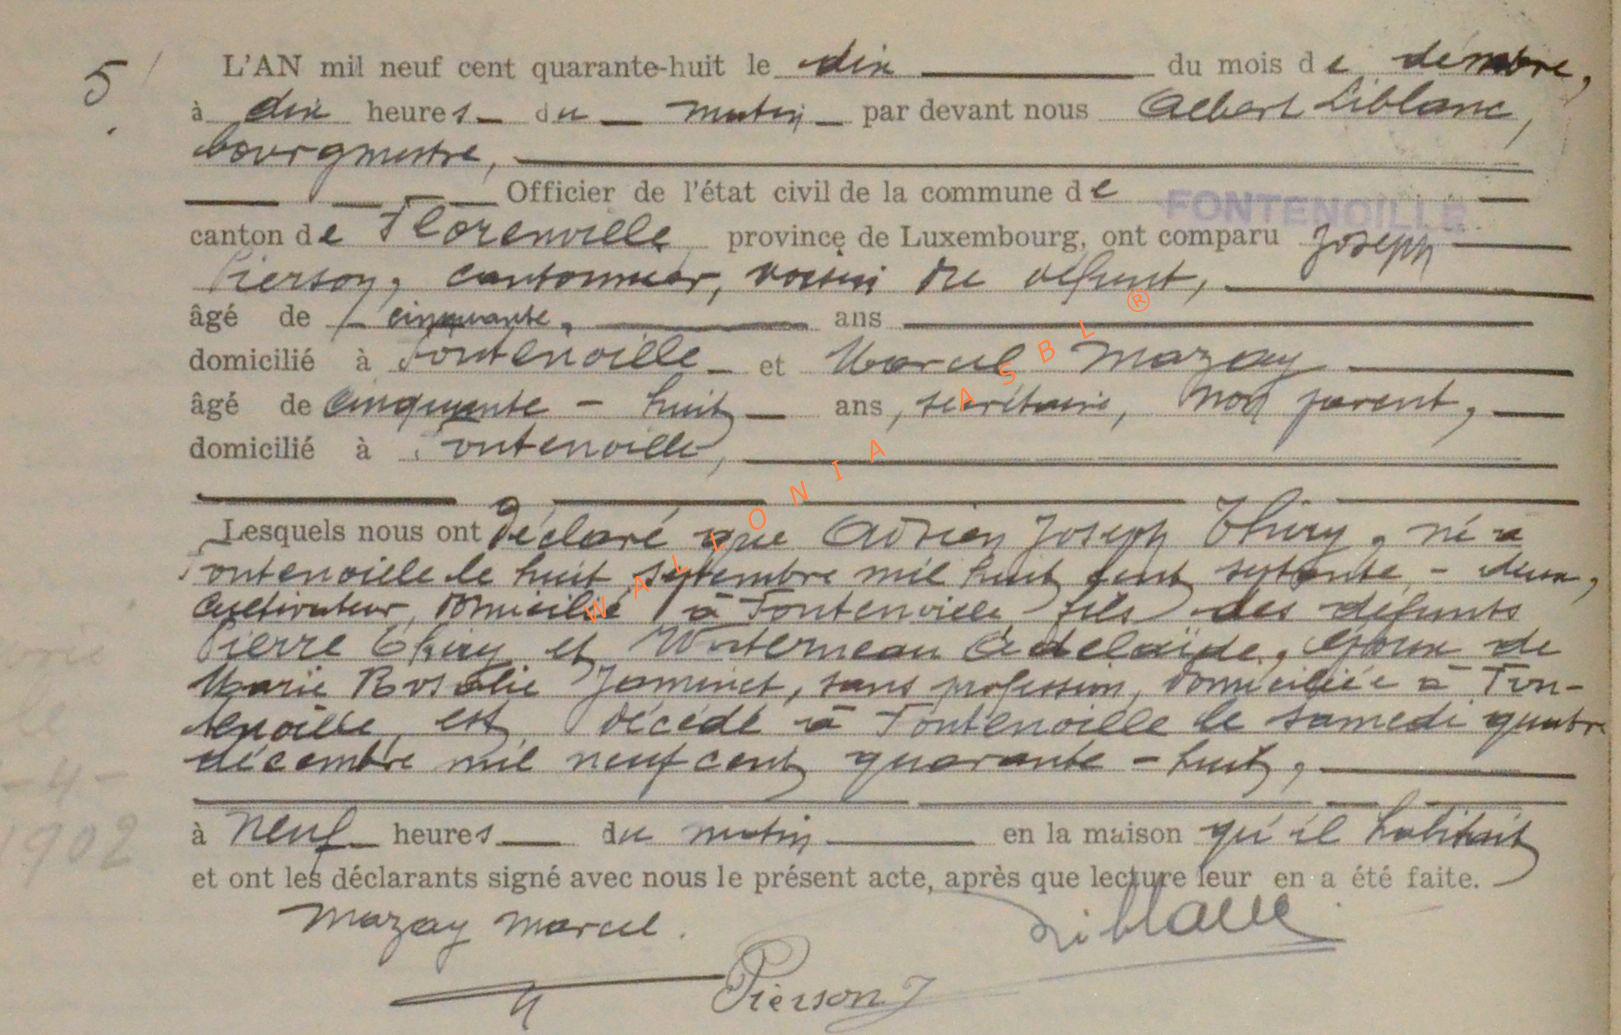 5
L'AN mil neuf cent quarante-huit le dix du mois de décembre,
à dix heures du matin par devant nous Albert Liblanc,
bourgmestre,
Officier de l'état civil de la commune de FONTENOILLE
canton de Florenville province de Luxembourg, ont comparu Joseph
Pierson, cantonnier, voisin du défunt,
âgé de cinquante, ans
domicilié à Fontenoille et Marcel Mazay
âgé de cinquante - huit ans, secrétaire, non parent,
domicilié à Fontenoille,
Lesquels nous ont déclaré que Adrien Joseph Thiry, né à
Fontenoille le huit septembre mil huit cent septante - deux,
cultivateur, domicilié à Fontenoille, fils des défunts
Pierre Thiry et Winterneau Adelaïde, époux de
Marie Rosalie Jaminet, sans profession, domiciliée à Fon-
tenoille, est décédé à Fontenoille le samedi quatre
décembre mil neuf cent quarante - huit,
à neuf heures du matin en la maison qu'il habitait
et ont les déclarants signé avec nous le présent acte, après que lecture leur en a été faite.
Mazay Marcel.
Liblanc
Pierson J
WALLONIA ASBL ®
le
-4-
1902